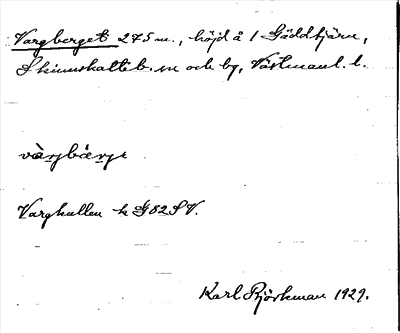 Vargberget 275 m., höjd å 1 Gäddtjärn,
Skinnskatteb. sn och bg, Västmanl. l.
vàrjbæ̀rjє
Varghallen k G82SV.
Karl Björkman 1929.